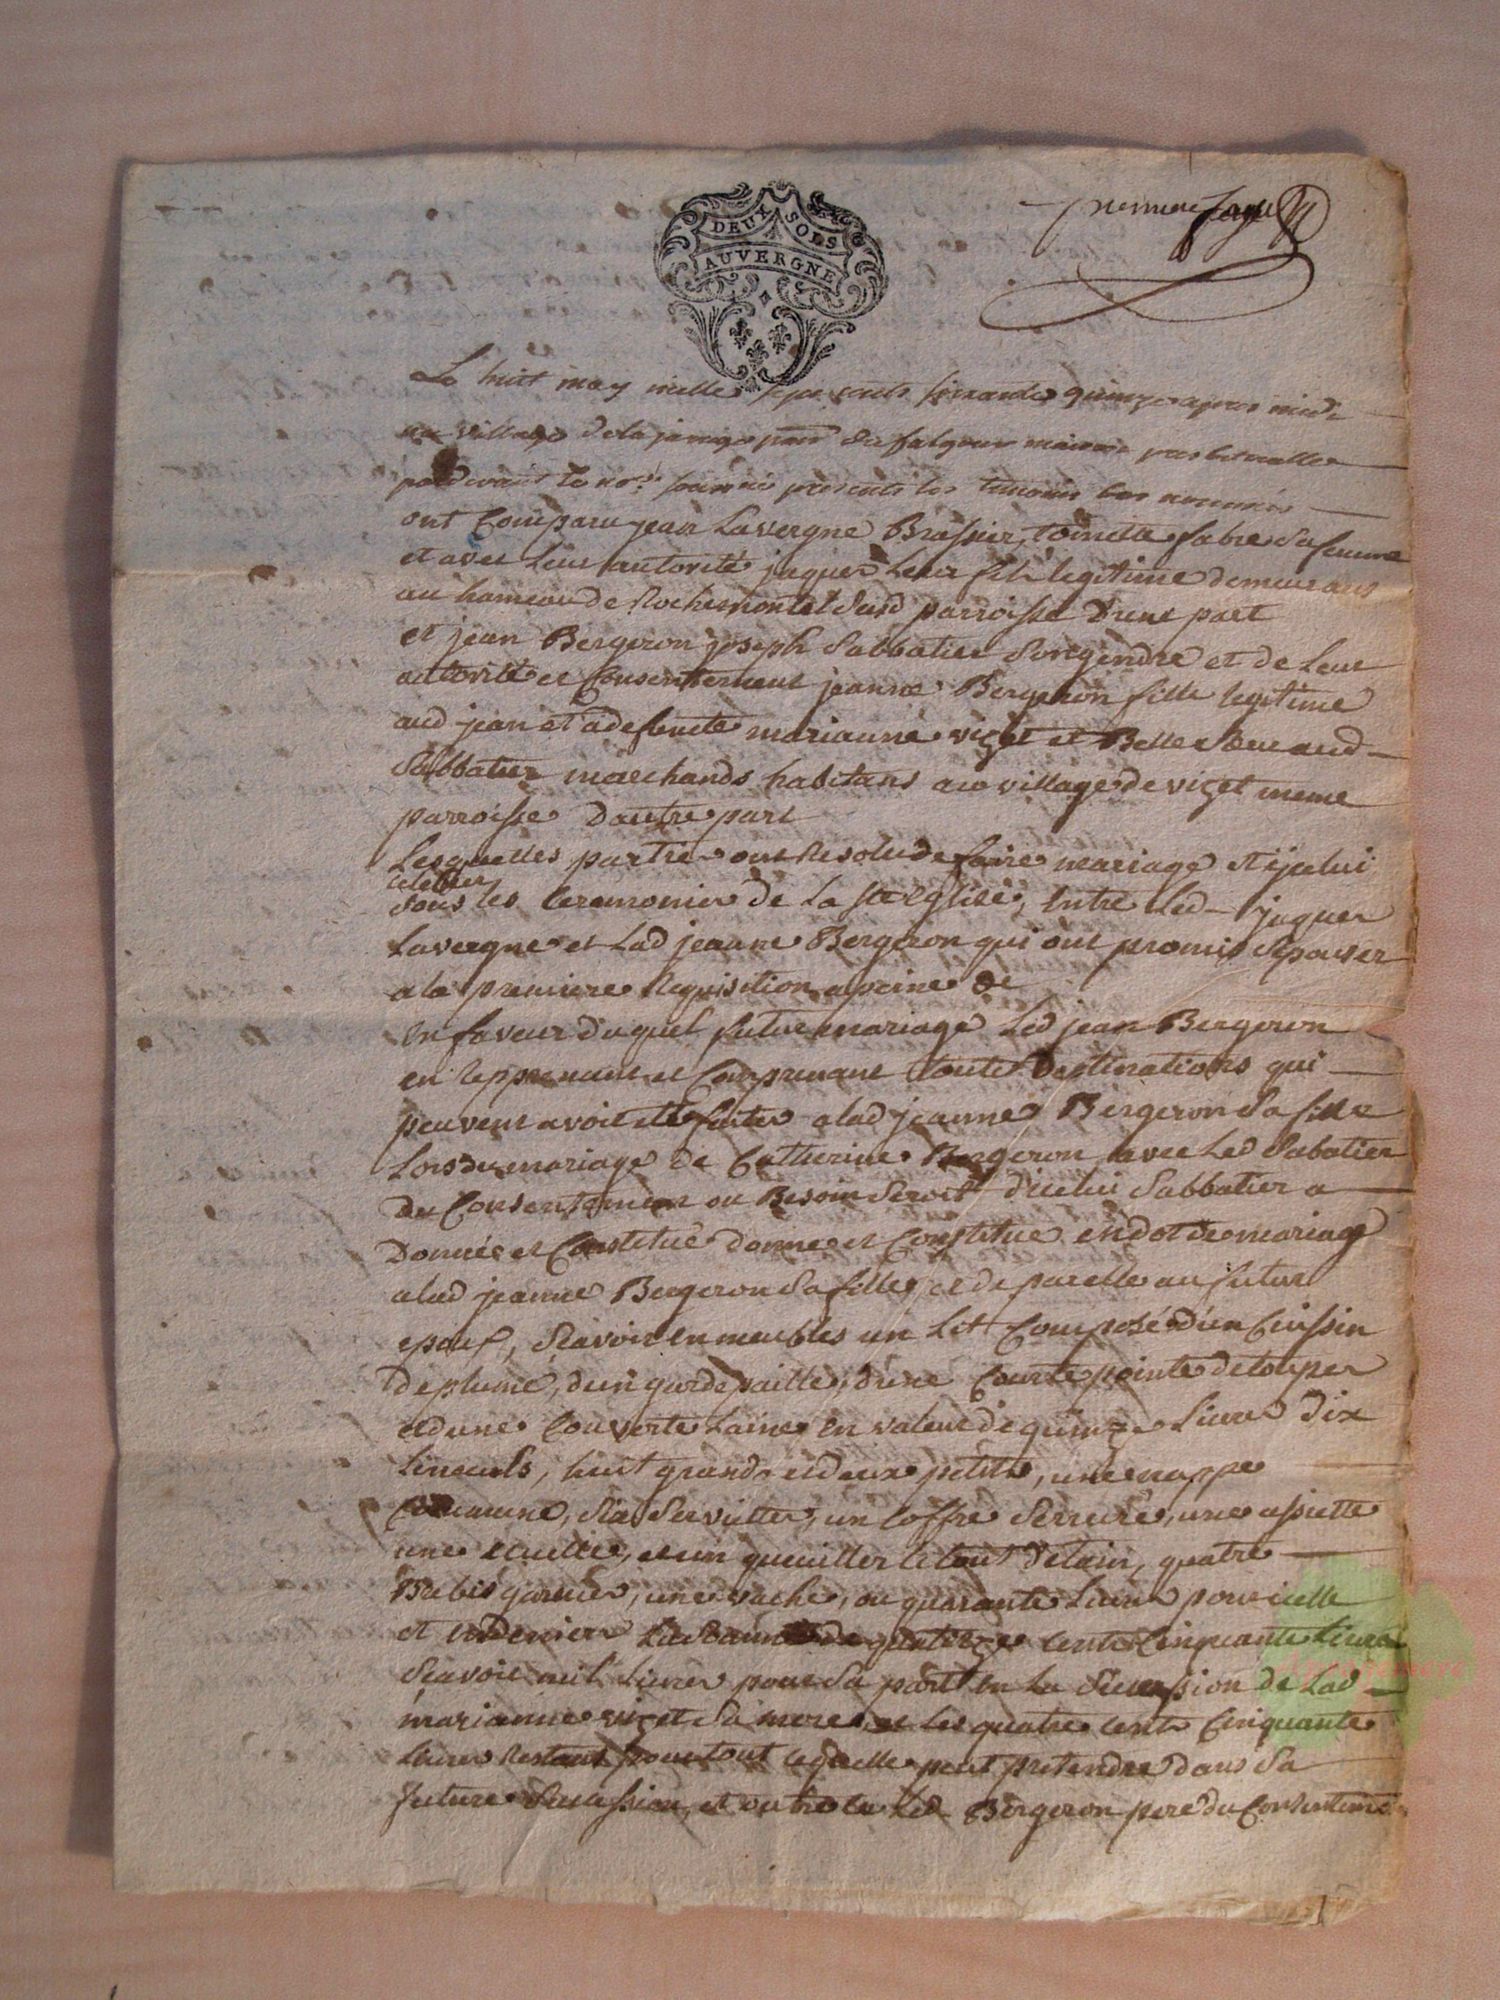 premiere page
DEUX SOLS
AUVERGNE
Le huit may mille sept cents soixante quinze apres midi
au village de la jarrige parr du falgoux maison
pardevant le nore. soussigné presents les temoins bas nommés
ont Comparu jean Lavergne Brassier, toinette fabre Sa femme
et avec Leur autorité jaques Leur fils legitime demeurans
au hameau de Rochemonteil susd parroisse D'une part
et jean Bergeron joseph Sabbatier Son gendre et de Leur
autorité et Consentement jeanne Bergeron fille legitime
aud jean et a defunte marianne vizet et Belle Soeur aud
Sabbatier marchands habitans au village de vizet meme
parroisse D'autre part
Lesquelles parties ont Resolu de faire mariage et iycelui
celebrer
sous les Ceremonies de La Ste Eglise, Entre Led jaques
Lavergne et Lad jeanne Bergeron qui ont promis S'epouser
a la premiere Requisition a peine &c
En faveur duquel futur mariage Led jean Bergeron
en reprenant et Comprenant toutes Destinations qui
peuvent avoir eté faites a lad jeanne Bergeron Sa fille
Lors du mariage de Catherine Bergeron avec Led Sabatier
Du Consentement ou Besoin Seroit d'icelui Sabbatier a
Donné et Constitué donne et Constitue en dot de mariage
a lad jeanne Bergeron Sa fille, et de par elle au futur
epoux, Sçavoir en meubles un Lit Composé d'un Cuissin
de plume, d'un gardepaille, d'une Courte pointe
et d'une Couverte Laine en valeur de quinze Livres Dix
Linceuls, huit grands et deux petits, une nappe
Commune, Six Serviettes, un Coffre Serruré, une assiette
une ecuelle, et un queuillier le tout d'etain, quatre
Brebis garnies, une vache, ou quarante Livres pour icelle
et En Denier La Somme de Cents Cinquante Livres
Sçavoir mil Livres pour Sa part en La Sucession de Lad
marianne vizet Sa mere, et Les quatre cents Cinquante
Livres Restant pour tout ce qu'elle peut pretendre dans Sa
future Sucession, et outre ce Led Bergeron pere du Consenteme